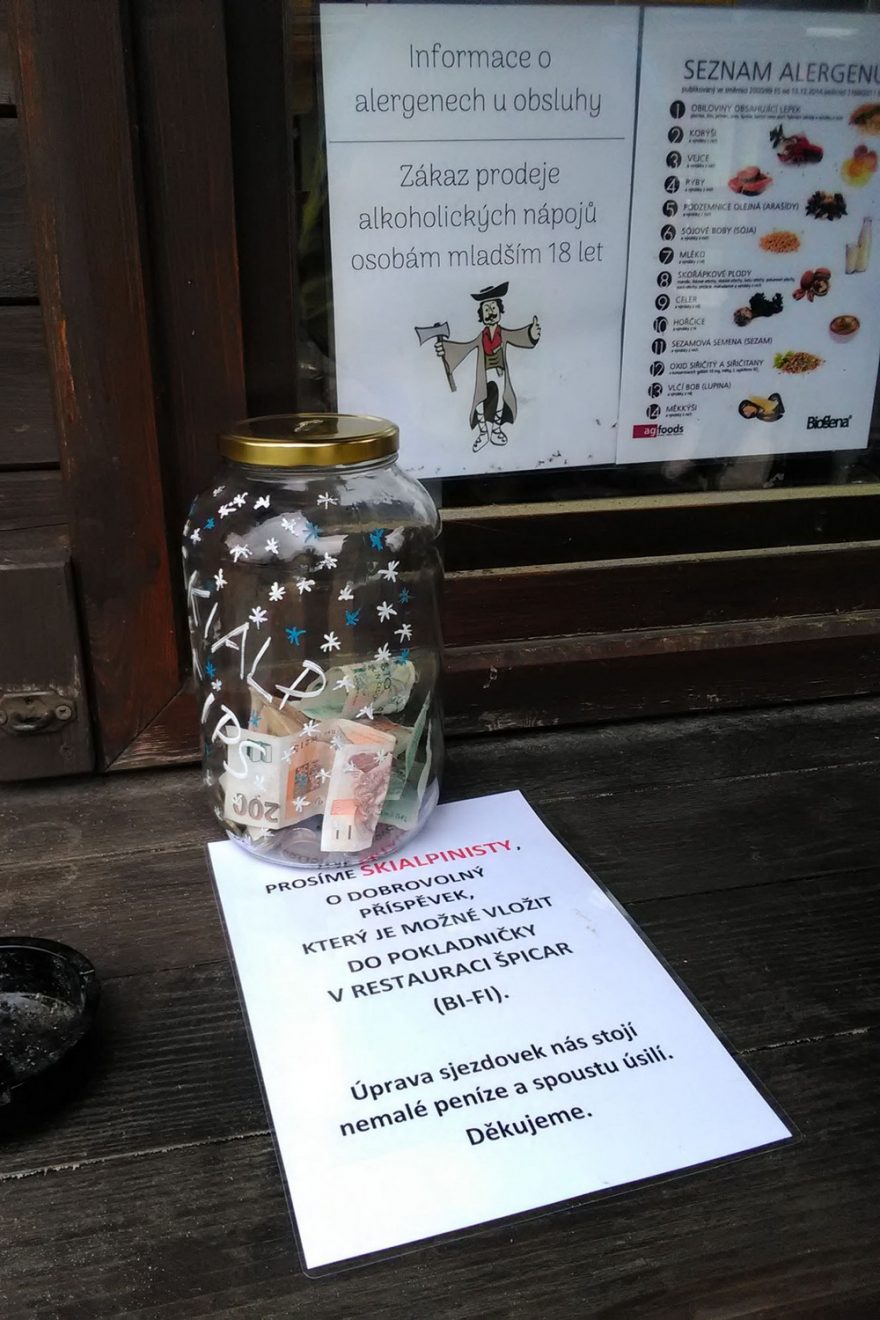 Informace o
alergenech u obsluhy
Zákaz prodeje
alkoholických nápojů
osobám mladším 18 let
SEZNAM ALERGENU
1 OBILOVINY OBSAHUJÍCÍ LEPEK
2 KORÝŠI
3 VEJCE
4 RYBY
5 PODZEMNICE OLEJNÁ (ARAŠÍDY)
6 SÓJOVÉ BOBY (SÓJA)
7 MLÉKO
8 SKOŘÁPKOVÉ PLODY
9 CELER
10 HOŘČICE
11 SEZAMOVÁ SEMENA (SEZAM)
12 OXID SIŘIČITÝ A SIŘIČITANY
13 VLČÍ BOB (LUPINA)
14 MĚKKÝŠI
agfoods
Biogena
SKIALP
TIPS
200
PROSÍME SKIALPINISTY,
O DOBROVOLNÝ
PŘÍSPĚVEK,
KTERÝ JE MOŽNÉ VLOŽIT
DO POKLADNIČKY
V RESTAURACI ŠPICAR
(BI-FI).
Úprava sjezdovek nás stojí
nemalé peníze a spoustu úsilí.
Děkujeme.